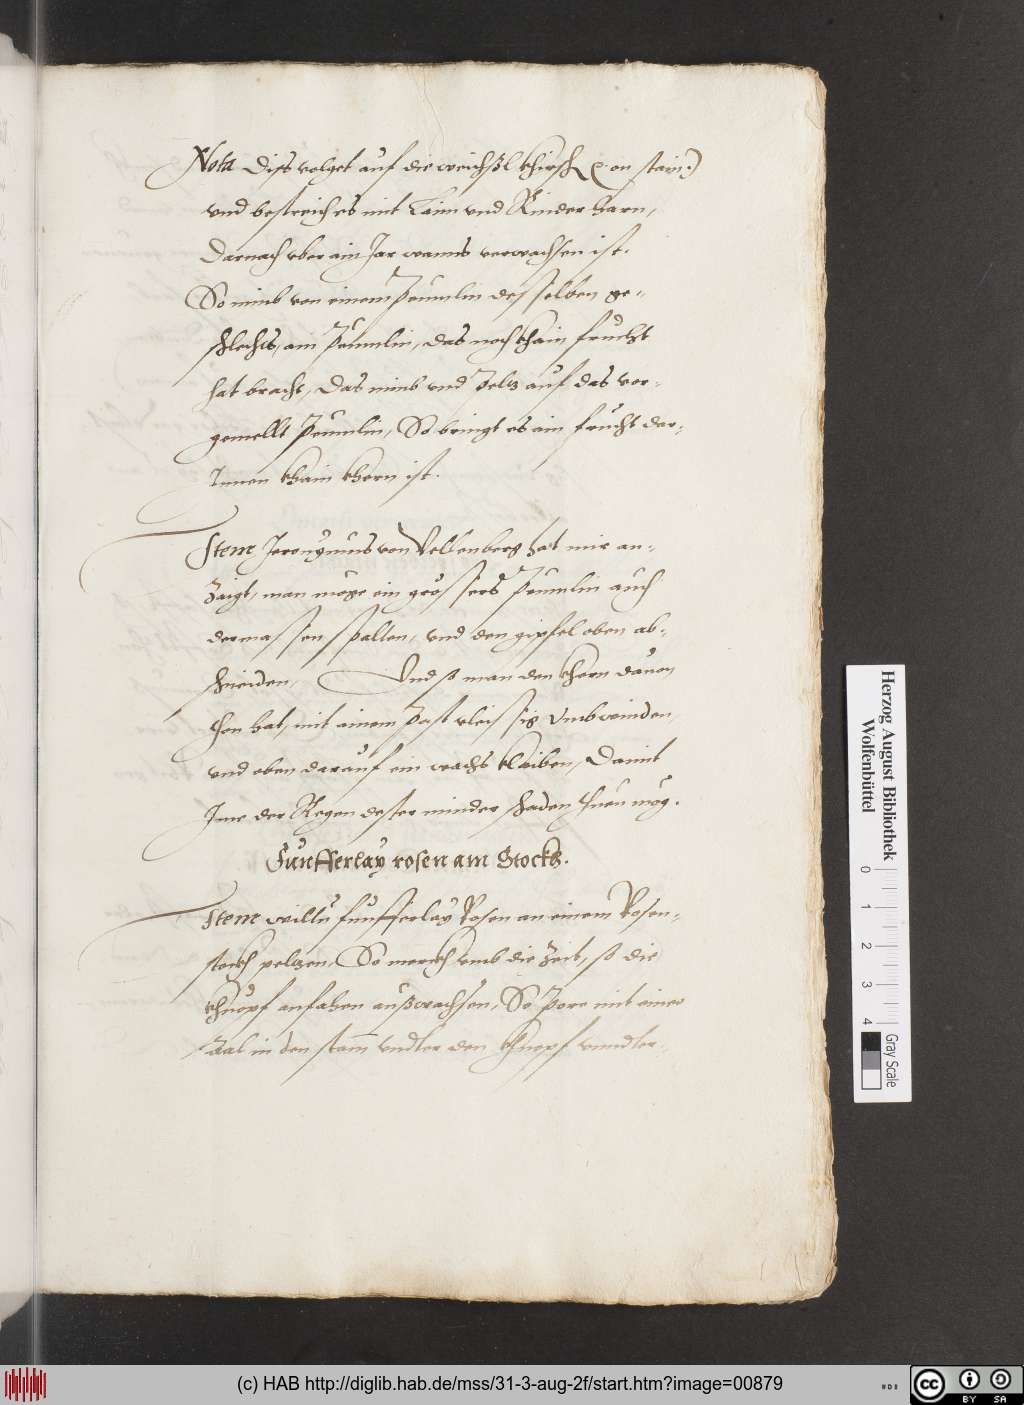 Nota Diss volget auf die weichßl khirsch (: on stain:)
vnd bestreich es mit Laim vnd Kinder harn,
Darnach vber ain Jar wanns verwachsen ist.
So nimb von einem Peumlin desselben ge-
schlechts, ain Peumlin, das noch khain frucht
hat bracht, Das nimb vnd Peltz auf das vor-
gemellt Peumlin, So bringt es ain frucht dar-
Innen khain khern ist.
Item Jeronymus von Vellenberg hat mir an-
zaigt, man möge ein grössers Peumlin auch
dermassen spalten, vnd den gipfel oben ab-
schneiden, Vnd so man den khern dauon
thon hat, mit ainem Past vleissig vmbwinden,
vnd oben darauf ein wachs klaiben, Damit
Ime der Regen dester minder schaden thuen mög.
Funfferlay rosen am Stockh.
Item wiltu funfferlay Rosen an einem Rosen-
stockh peltzen, So merckh vmb die Zeit, so die
khnöpf anfahen außwachsen, So Pore mit einer
Aal in den stam vndter den khnopf vnndter-
Herzog August Bibliothek
Wolfenbüttel
0 1 2 3 4
Gray Scale
(c) HAB http://diglib.hab.de/mss/31-3-aug-2f/start.htm?image=00879
cc BY SA